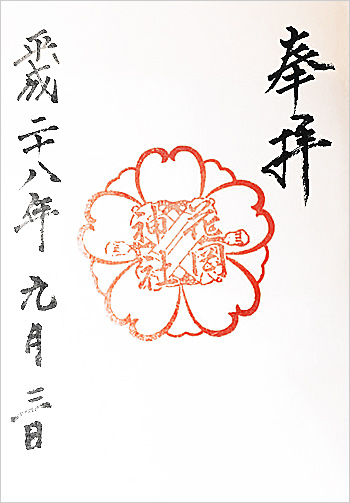 奉拝
花岡神社
平成二十八年九月三日